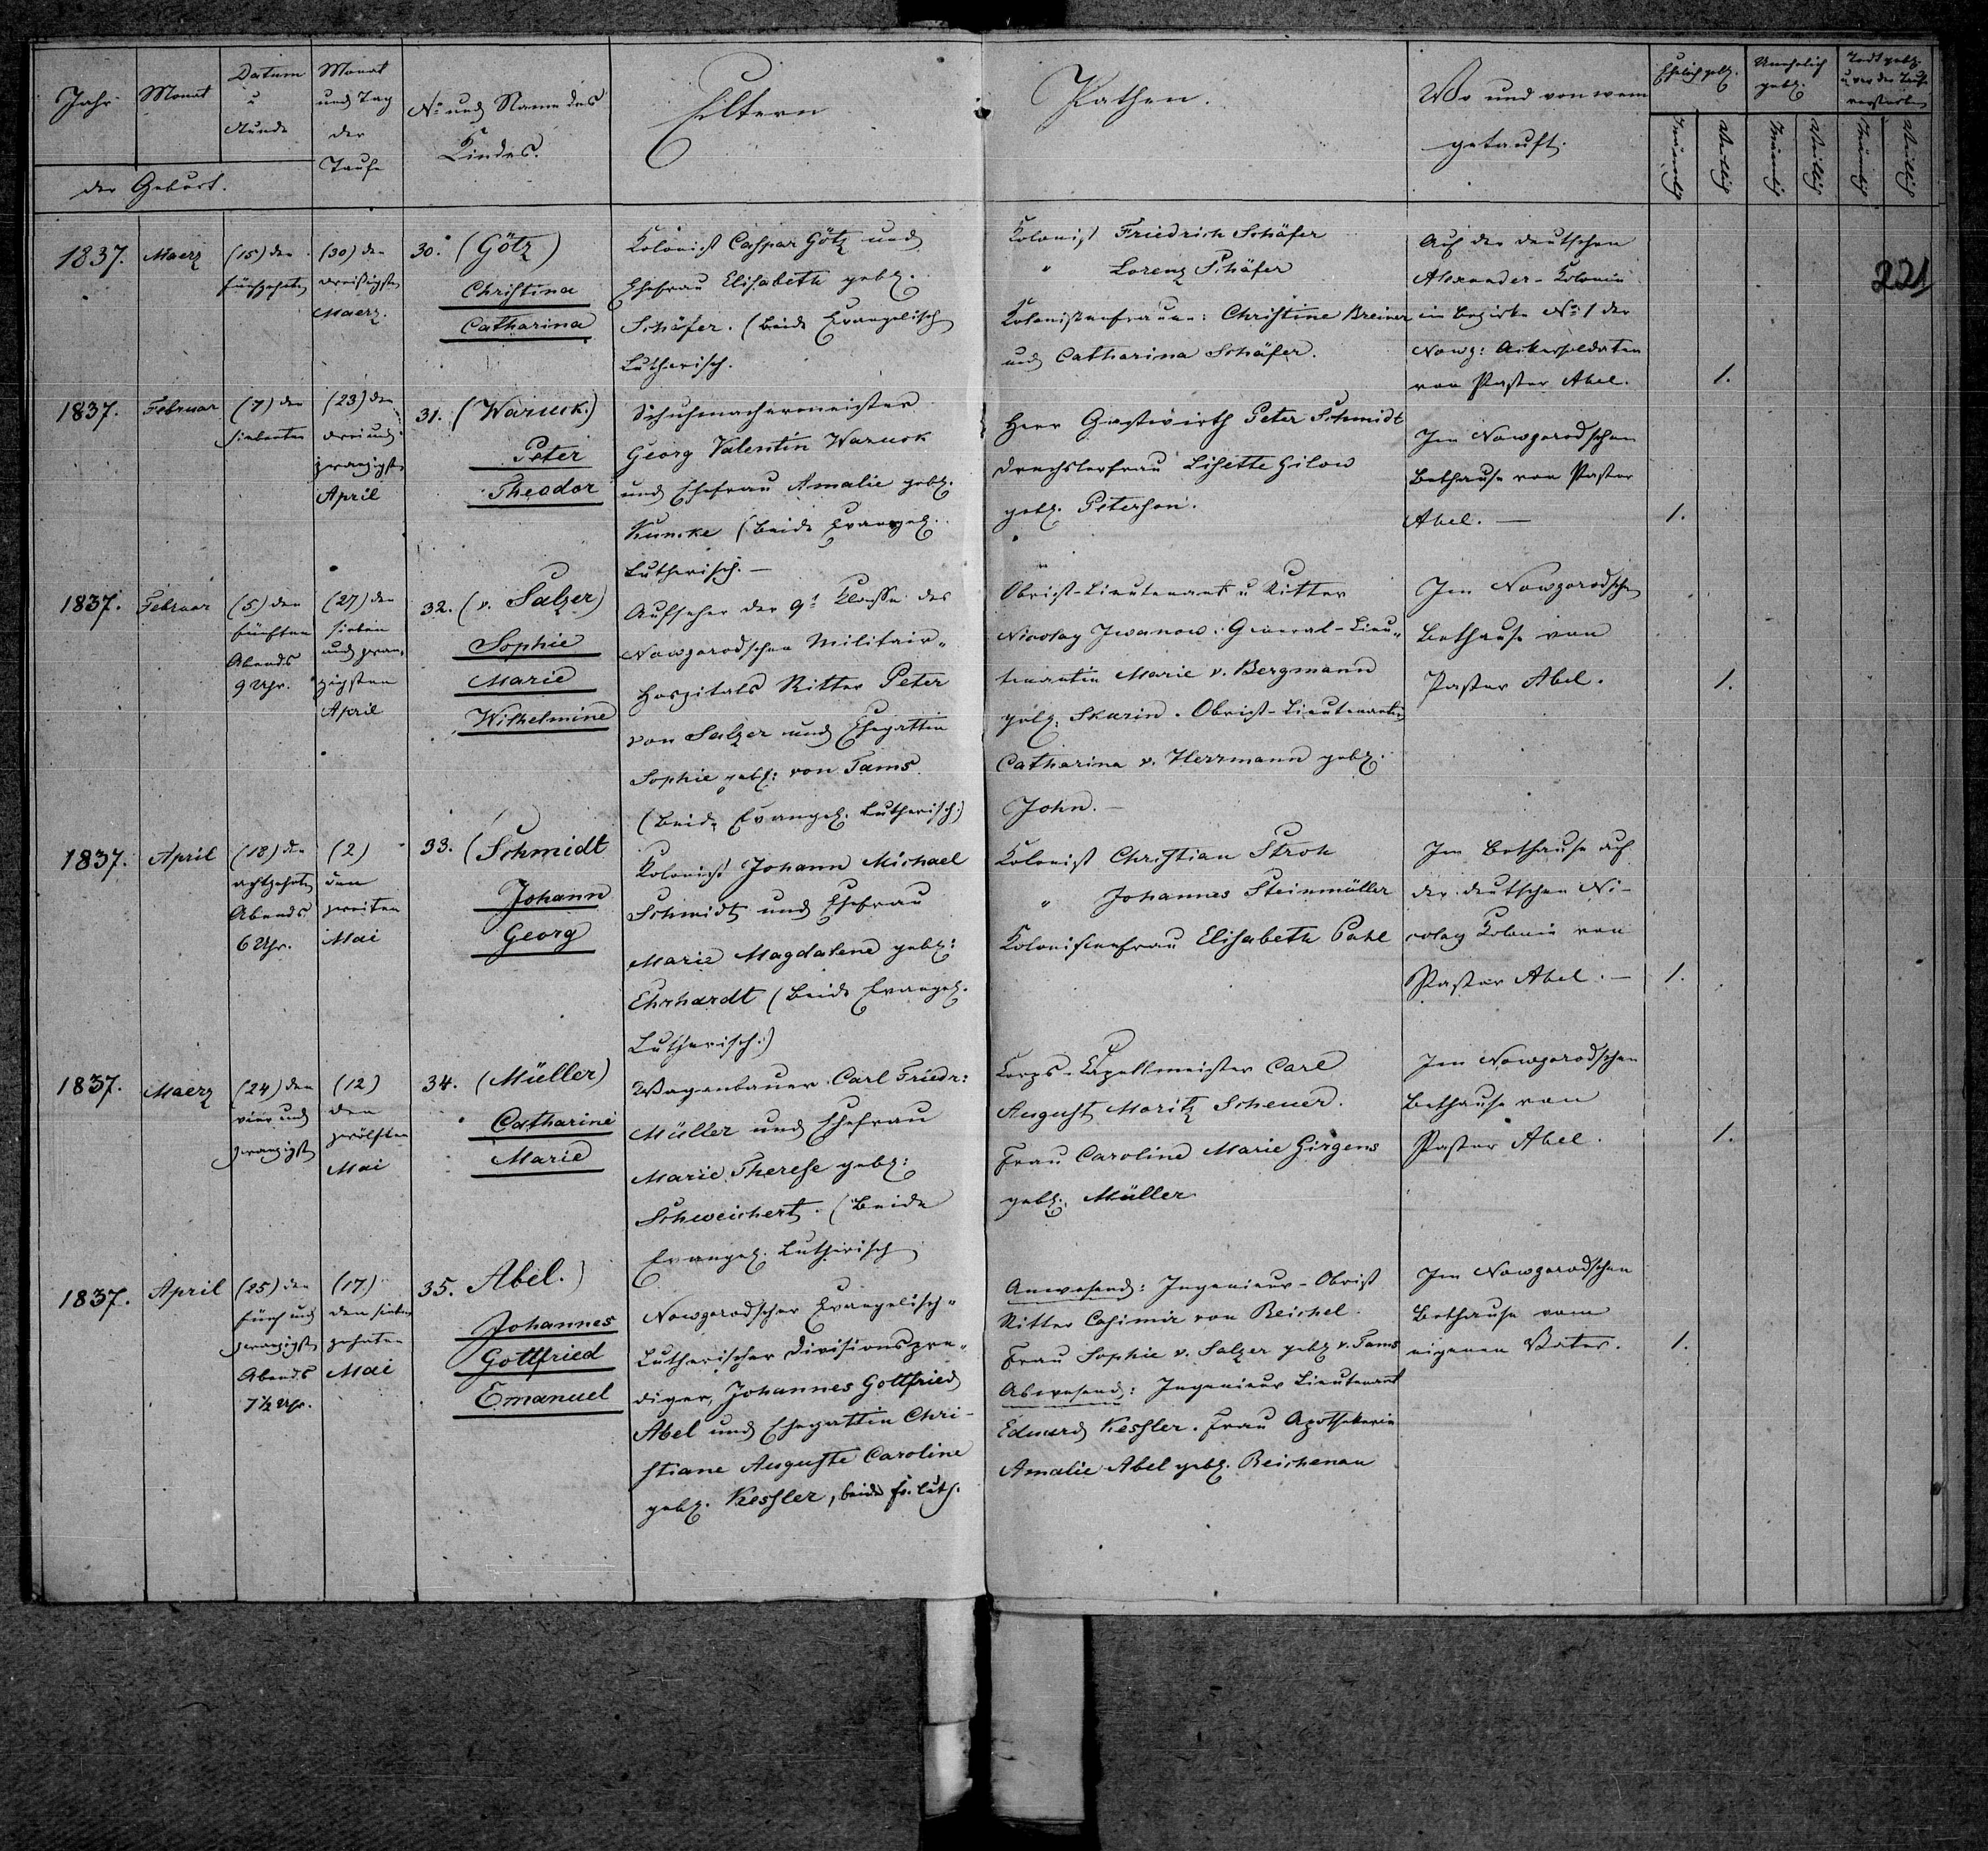 Jahr
Monat
Datum
u
Stunde
der Geburt.
Monat
und Tag
der
Taufe
No und Name des
Kindes.
Eltern
Pathen.
Wo und von wem
getauft.
Ehelich geb.
Unehelich
geb.
Todt geb.
u vor der Taufe
verstorben
Männlich
Weiblich
Männlich
Weiblich
Männlich
Weiblich
221
1837.
Maerz
(15) den
fünfzehnten
(30) den
dreißigsten
Maerz.
30. (Götz)
Christina
Catharina
Kolonist Caspar Götz und
Ehefrau Elisabeth geb.
Schäfer. (beide Evangelisch
Lutherisch.
Kolonist Friedrich Schäfer
" Lorenz Schäfer
Kolonistenfrauen: Christine Breiner
und Catharina Schäfer.
Auf der deutschen
Alexander-Kolonie
im Bezirke No 1 der
Nowg: Ackersoldaten
von Pastor Abel.
1.
1837.
Februar
(7) den
siebenten
(23) den
drei und
zwanzigsten
April
31. (Waruck.)
Peter
Theodor
Schuhmachermeister
Georg Valentin Waruck
und Ehefrau Amalie geb.
Kuncke (beide Evangel.
Lutherisch. —
Herr Gastwirth Peter Schmidt
Drechslerfrau Lisette Gilow
geb. Peterson.
Im Nowgorodschen
Bethause von Pastor
Abel. —
1.
1837.
Februar
(5) den
fünften
Abends
9 Uhr.
(27) den
sieben
und zwan-
zigsten
April
32. (v. Salzer)
Sophie
Marie
Wilhelmine
Aufseher der 9t Klasse des
Nowgorodschen Militair-
Hospitals Ritter Peter
von Salzer und Ehegattin
Sophie geb: von Tams.
(beide Evangel. Lutherisch.)
Obrist-Lieutenant u Ritter
Nicolay Iwanow. General-Lieu-
tenantin Marie v. Bergmann
geb. Skurin. Obrist-Lieutenantin
Catharina v. Herrmann geb.
John. —
Im Nowgorodschen
Bethause von
Pastor Abel.
1.
1837.
April
(18) den
achtzehnten
Abends
6 Uhr.
(2)
den
zweiten
Mai
33. (Schmidt
Johann
Georg
Kolonist Johann Michael
Schmidt und Ehefrau
Marie Magdalene geb:
Ehrhardt (beide Evangel.
Lutherisch.)
Kolonist Christian Stroh
" Johannes Steinmüller
Kolonistenfrau Elisabeth Pahl
Im Bethause auf
der deutschen Ni-
colay Kolonie von
Pastor Abel. —
1.
1837.
Maerz
(24) den
vier und
zwanzigst
(12)
den
zwölften
Mai
34. (Müller)
Catharine
Marie
Wagenbauer Carl Friedr:
Müller und Ehefrau
Marie Therese geb:
Schweichert. (beide
Evangel. Lutherisch
Corps-Capellmeister Carl
August Moritz Scheuer.
Frau Caroline Marie Girgens
geb. Müller
Im Nowgorodschen
Bethause von
Pastor Abel.
1.
1837.
April
(25) den
fünf und
zwanzigsten
Abends
7½ Uhr.
(17)
den sieben
zehnten
Mai
35. Abel.)
Johannes
Gottfried
Emanuel
Nowgorodscher Evangelisch-
Lutherischer Divisionspre-
diger, Johannes Gottfried
Abel und Ehegattin Chri-
stiane Auguste Caroline
geb. Kessler, beide Ev. Luth.
Anwesend: Ingenieur-Obrist
Ritter Casimir von Reichel.
Frau Sophie v. Salzer geb. v. Tams
Abwesend: Ingenieur Lieutenant
Eduard Kessler. Frau Apothekerin
Amalie Abel geb. Reichenau
Im Nowgorodschen
Bethause vom
eigenen Vater.
1.